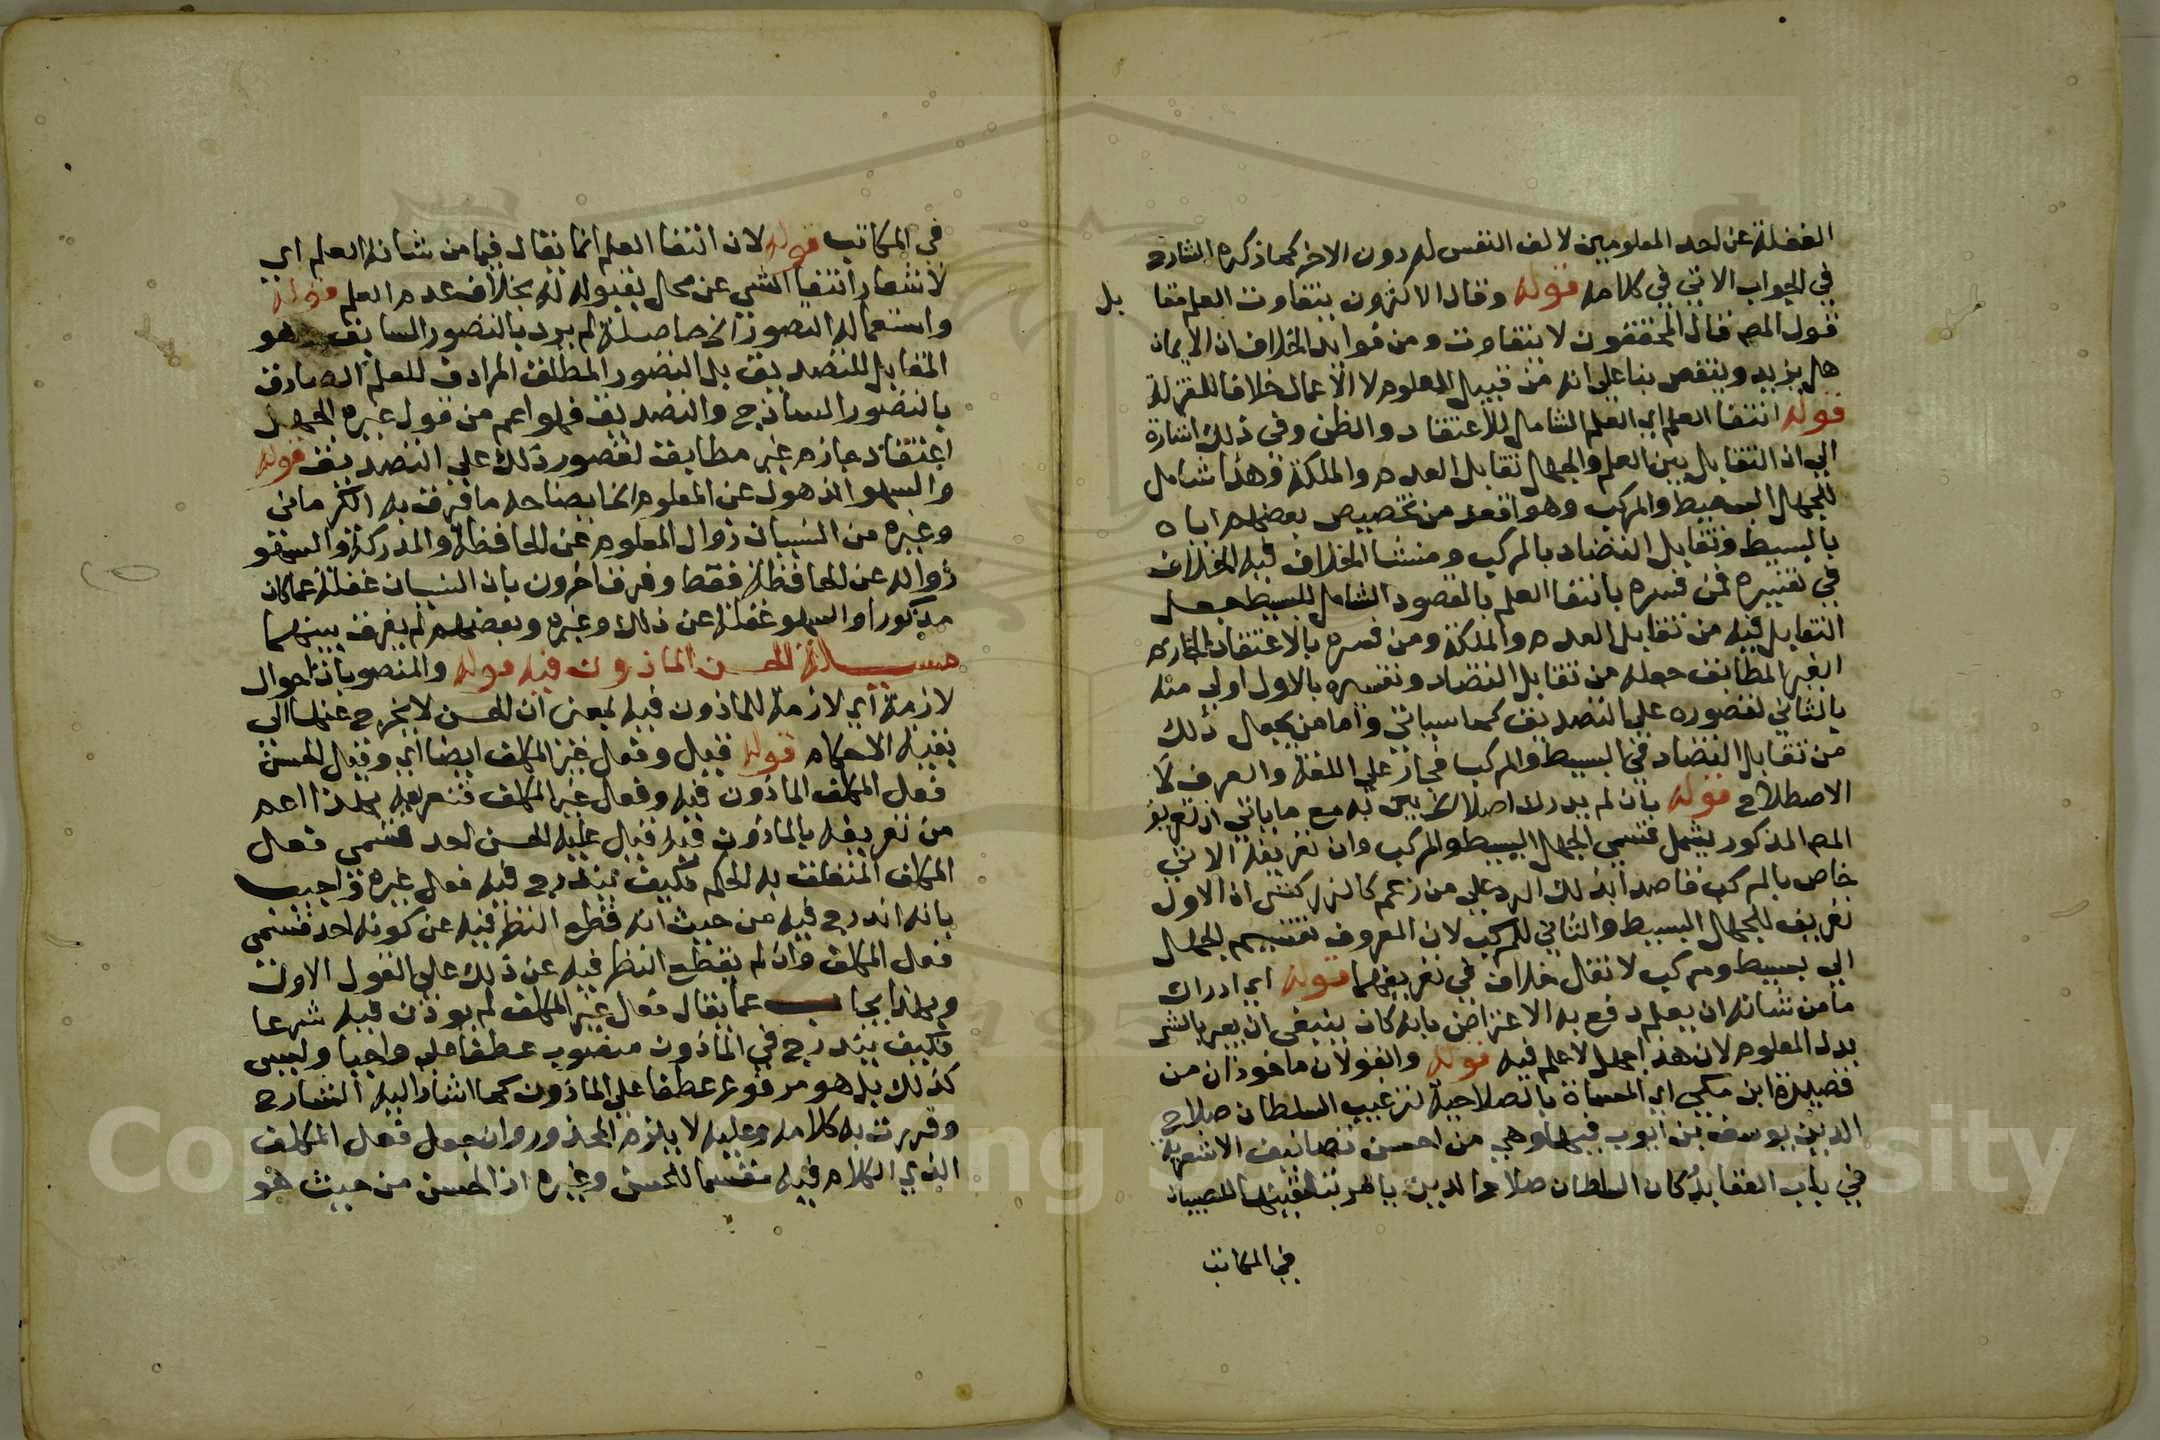 الغفلة عن احد المعلومين لالف النفس له دون الاخر كما ذكره الشارح
في الجواب الاتي في كلامه قوله وقال الاكثرون يتفاوت العلم مقا بل
قول المص قال المحققون لا يتفاوت ومن فوائد الخلاف ان الايمان
هل يزيد وينقص بنا على انه من قبيل العلوم لا الاعمال خلافا للمعتزلة
قوله انتفا العلم اي العلم الشامل للاعتقاد والظن وفي ذلك اشارة
الي ان التقابل بين العلم والجهل تقابل العدم والملكة وهذا شامل
للجهل البسيط والمركب وهو اقعد من تخصيص بعضهم اياه
بالبسيط وتقابل التضاد بالمركب ومنشا الخلاف فيه الخلاف
في تفسيره فمن فسره بانتفا العلم بالمقصود الشامل للبسيط جعل
التقابل فيه من تقابل العدم والملكة ومن فسره بالاعتقاد الجازم
الغير المطابق جعله من تقابل التضاد وتفسيره بالاول اولي منه
بالثاني لقصوره علي التصديق كما سياتي واما من يجعل ذلك
من تقابل التضاد في البسيط والمركب فجاز علي اللغة والعرف لا
الاصطلاح قوله بان لم يدرك اصلا بين به مع ما ياتي ان تعريف
المص المذكور يشمل قسمي الجهل البسيط والمركب وان تعريفه الاتي
خاص بالمركب قاصدا بذلك الرد علي من زعم كالزركشي ان الاول
تعريف للجهل البسيط والثاني للمركب لان المعروف تقسيم الجهل
الي بسيط ومركب لا نقل خلاف في تعريفهما قوله اي ادراك
ما من شانه ان يعلم دفع به الاعتراض بانه كان ينبغي ان يعبر بالشي
بدل المعلوم لان هذا جهل لا علم فيه قوله والقولان ماخوذان من
قصيدة ابن مكي اي المسماة بالصلاحية لترغيب السلطان صلاح
الدين يوسف بن ايوب فيها وهي من احسن تصانيف الاشعرية
في باب العقايد كان السلطان صلاح الدين يامر بتلقينها للصبيان
في المكاتب
في المكاتب قوله لان انتفا العلم انما يقال فيما من شانه العلم اي
لاشعار انتفا الشي عن محل بقبوله له بخلاف عدم العلم قوله
واستعماله التصور الخ حاصله لم يرد بالتصور السابق هو
المقابل للتصديق بل التصور المطلق المرادف للعلم الصادق
بالتصور الساذج والتصديق فهو اعم من قول غيره الجهل
اعتقاد جازم غير مطابق لقصور ذلك علي التصديق قوله
والسهو الذهول عن المعلوم الخ ايضاحه ما فرق به الكرماني
وغيره من النسيان زوال المعلوم عن الحافظة والمدركة والسهو
زواله عن الحافظة فقط وفرق اخرون بان النسيان غفلة عما كان
مذكورا والسهو غفلة عن ذلك وغيره وبعضهم لم يفرق بينهما
مسالة الحسن الماذون فيه قوله والمنصوبات احوال
لازمة اي لازمة للماذون فيه بمعني ان الحسن لا يخرج عنها الي
بقية الاحكام قوله قيل وفعل غير المكلف ايضا اي وقيل الحسن
فعل المكلف الماذون فيه وفعل غير المكلف فتعريفه بهذا اعم
من تعريفه بالماذون فيه فيال عليه الحسن احد قسمي فعل
المكلف المتعلق به الحكم فكيف يندرج فيه فعل غيره واجيب
بانه اندرج فيه من حيث انه قطع النظر فيه عن كونه احد قسمي
فعل المكلف وان لم يقطع النظر فيه عن ذلك علي القول الاول
وبهذا يجاب عما يقال فعل غير المكلف لم يوذن فيه شرعا
فكيف يندرج في الماذون منصوب عطفا علي واجبا وليس
كذلك بل هو مرفوع عطفا علي الماذون كما اشار اليه الشارح
وقررت به كلامه وعليه لا يلزم المحذور وان جعل فعل المكلف
الذي الكلام فيه مقسما للحسن وغيره اذ الحسن من حيث هو